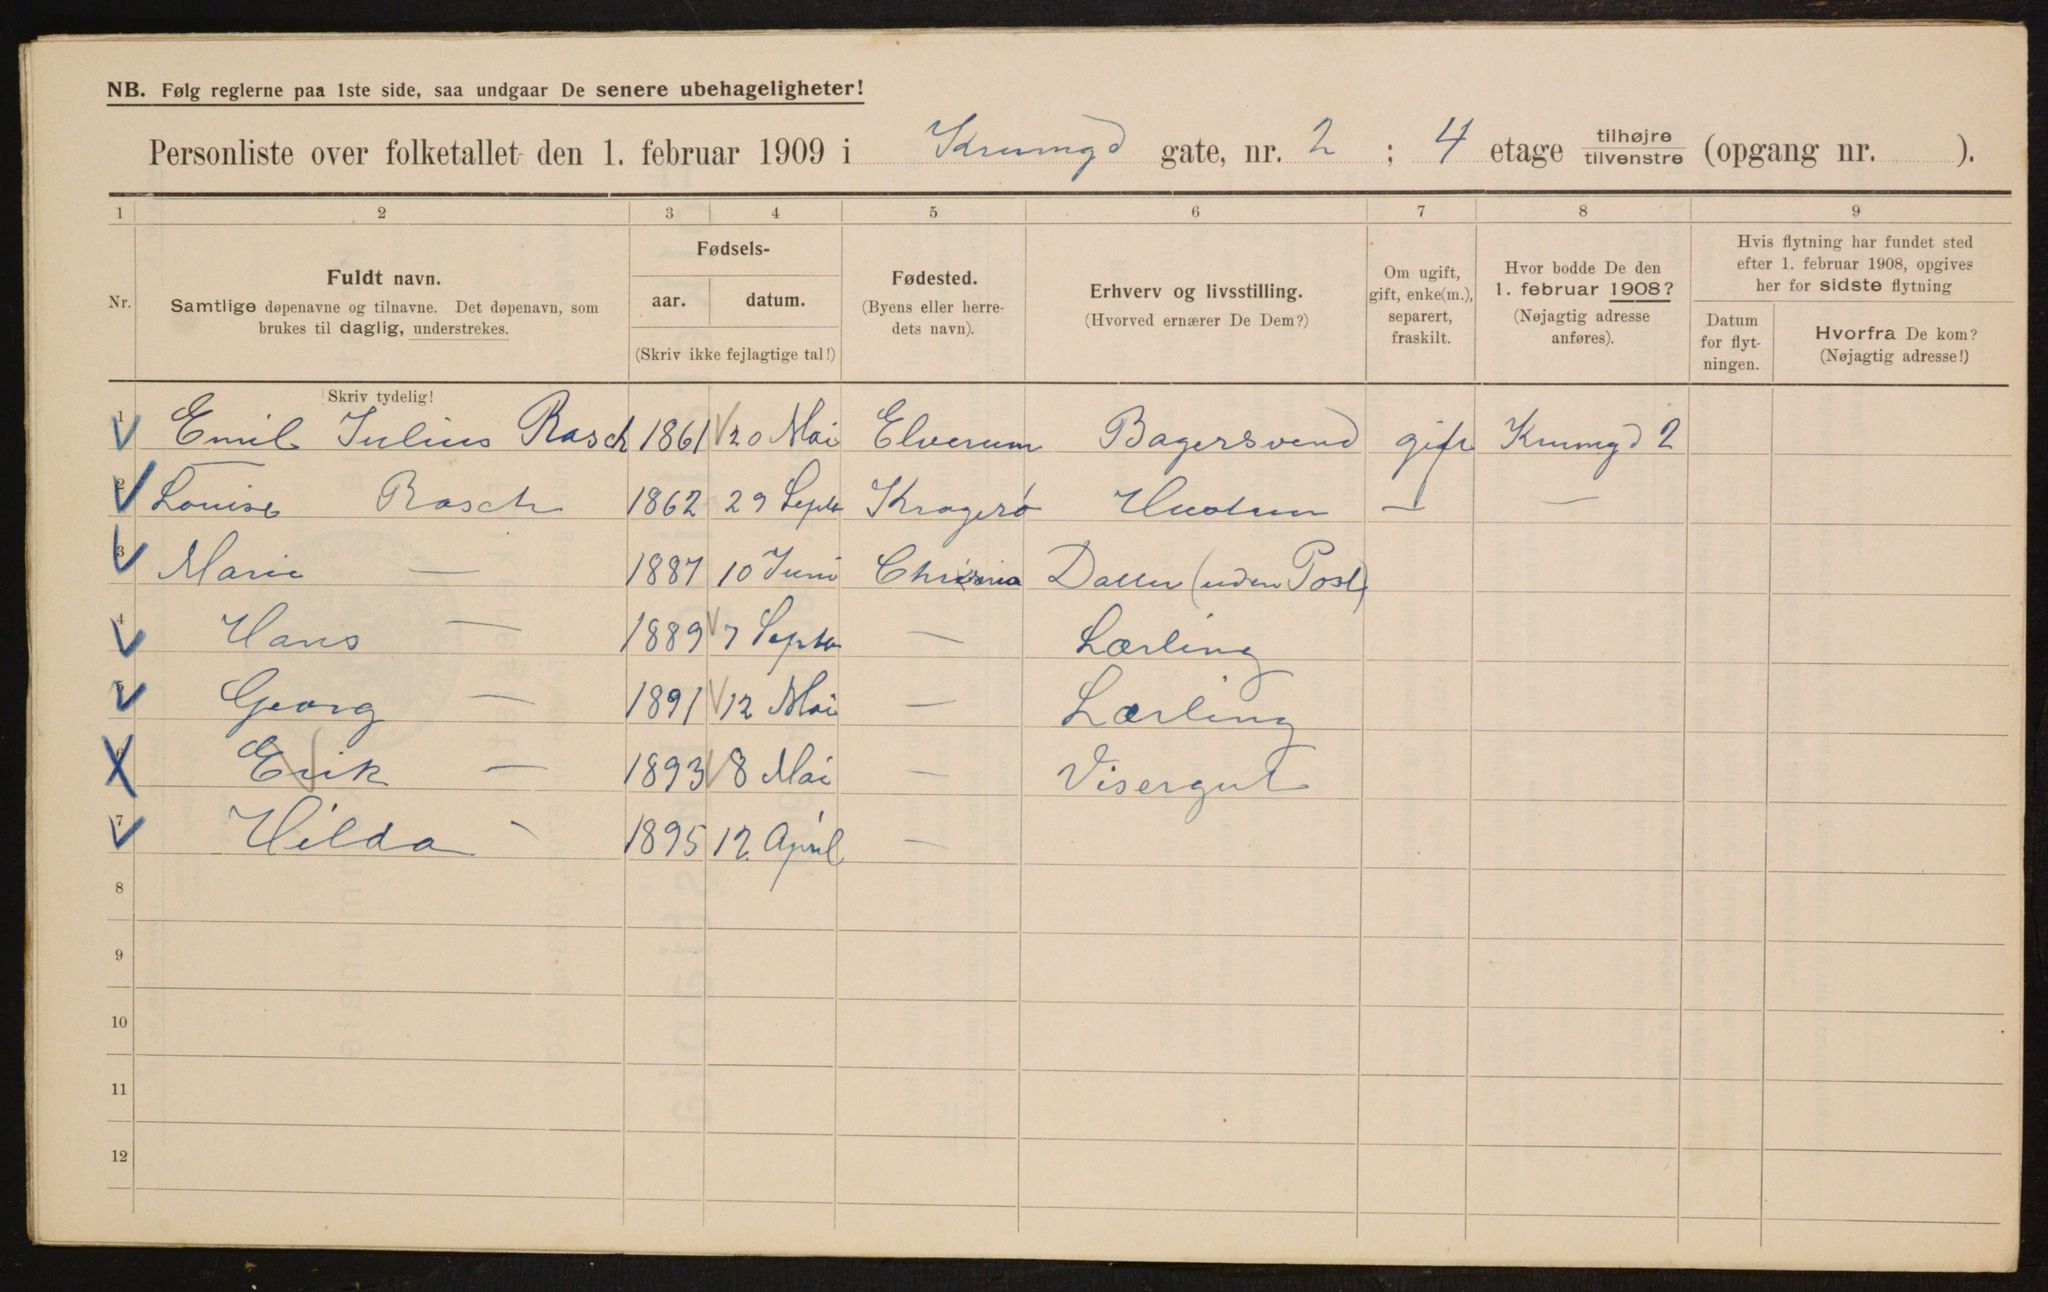 NB. Følg reglerne paa 1ste side, saa undgaar De senere ubehageligheter!
Personliste over folketallet den 1. februar 1909 i Krumgd gate, nr. 2 ; 4 etage tilhøjre tilvenstre (opgang nr. ).
1 2 3 4 5 6 7 8 9
Nr.
Fuldt navn.
Samtlige døpenavne og tilnavne. Det døpenavn, som
brukes til daglig, understrekes.
Skriv tydelig!
Fødsels-
aar. datum.
(Skriv ikke fejlagtige tal!)
Fødested.
(Byens eller herre-
dets navn).
Erhverv og livsstilling.
(Hvorved ernærer De Dem?)
Om ugift,
gift, enke(m.),
separert,
fraskilt.
Hvor bodde De den
1. februar 1908?
(Nøjagtig adresse
anføres).
Hvis flytning har fundet sted
efter 1. februar 1908, opgives
her for sidste flytning
Datum
for flyt-
ningen.
Hvorfra De kom?
(Nøjagtig adresse!)
1 Emil Julius Rasch 1861 20 Mai Elverum Bagersvend gift Krumgd 2
2 Louise Rasch 1862 29 Septr Kragerø Hustru — —
3 Marie — 1887 10 Juni Chrania Datter (uden Post)
4 Hans — 1889 7 Septr — Lærling
5 Georg — 1891 12 Mai — Lærling
6 Erik — 1893 8 Mai — Visergut
7 Hilda — 1895 12 April —
8
9
10
11
12